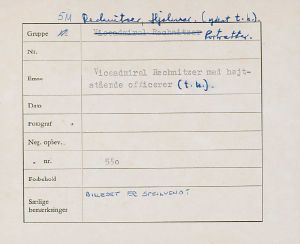 5M Rechnitzer Hjalmar. (ykst t.k.)
Gruppe M. Viceadmiral Rechnitzer Portrætter.
Nr.
Emne Viceadmiral Rechnitzer med højt-
stående officerer (t.k.).
Dato
Fotograf
Neg. opbev.
" nr. 550
Forbehold
Særlige
bemærkninger BILLEDET ER SPEJLVENDT